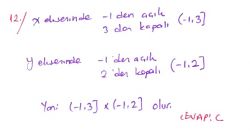 12./ x ekseninde -1 den açık
3 den kapalı (-1,3]
y ekseninde -1 den açık
2 den kapalı (-1,2]
Yani (-1,3] x (-1,2] olur.
CEVAP: C